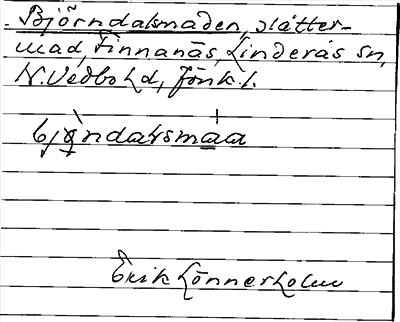 Björndalsmaden, slåtter-
mad, Finnanäs, Linderås sn,
N. Vedbo hd, Jönk. l.
bjǫ̀ndalsmáa
Erik Lönnerholm